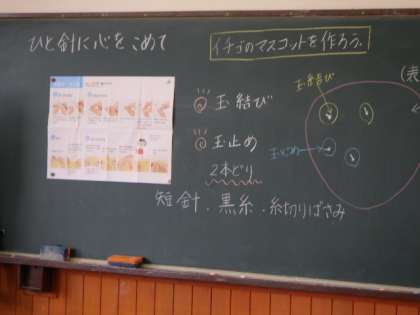 ひと針に心をこめて
イチゴのマスコットを作ろう。
玉結び
(表
玉結び
玉止め
玉止め
2本どり
短針・黒糸・糸切りばさみ